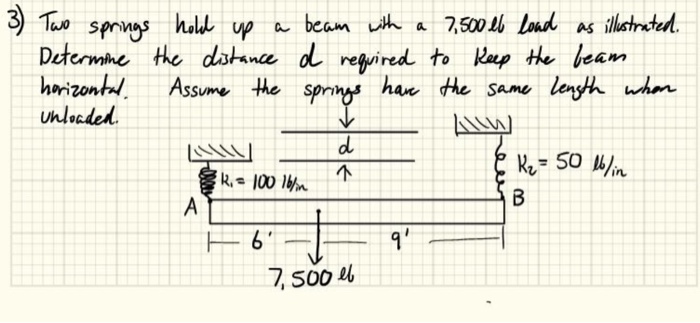 3) Two springs hold up a beam with a 7,500 lb load as illustrated.
Determine the distance d required to keep the beam
horizontal. Assume the springs have the same length when
unloaded.
d
K₁ = 100 lb/in
K₂ = 50 lb/in
A
B
6'
9'
7,500 lb